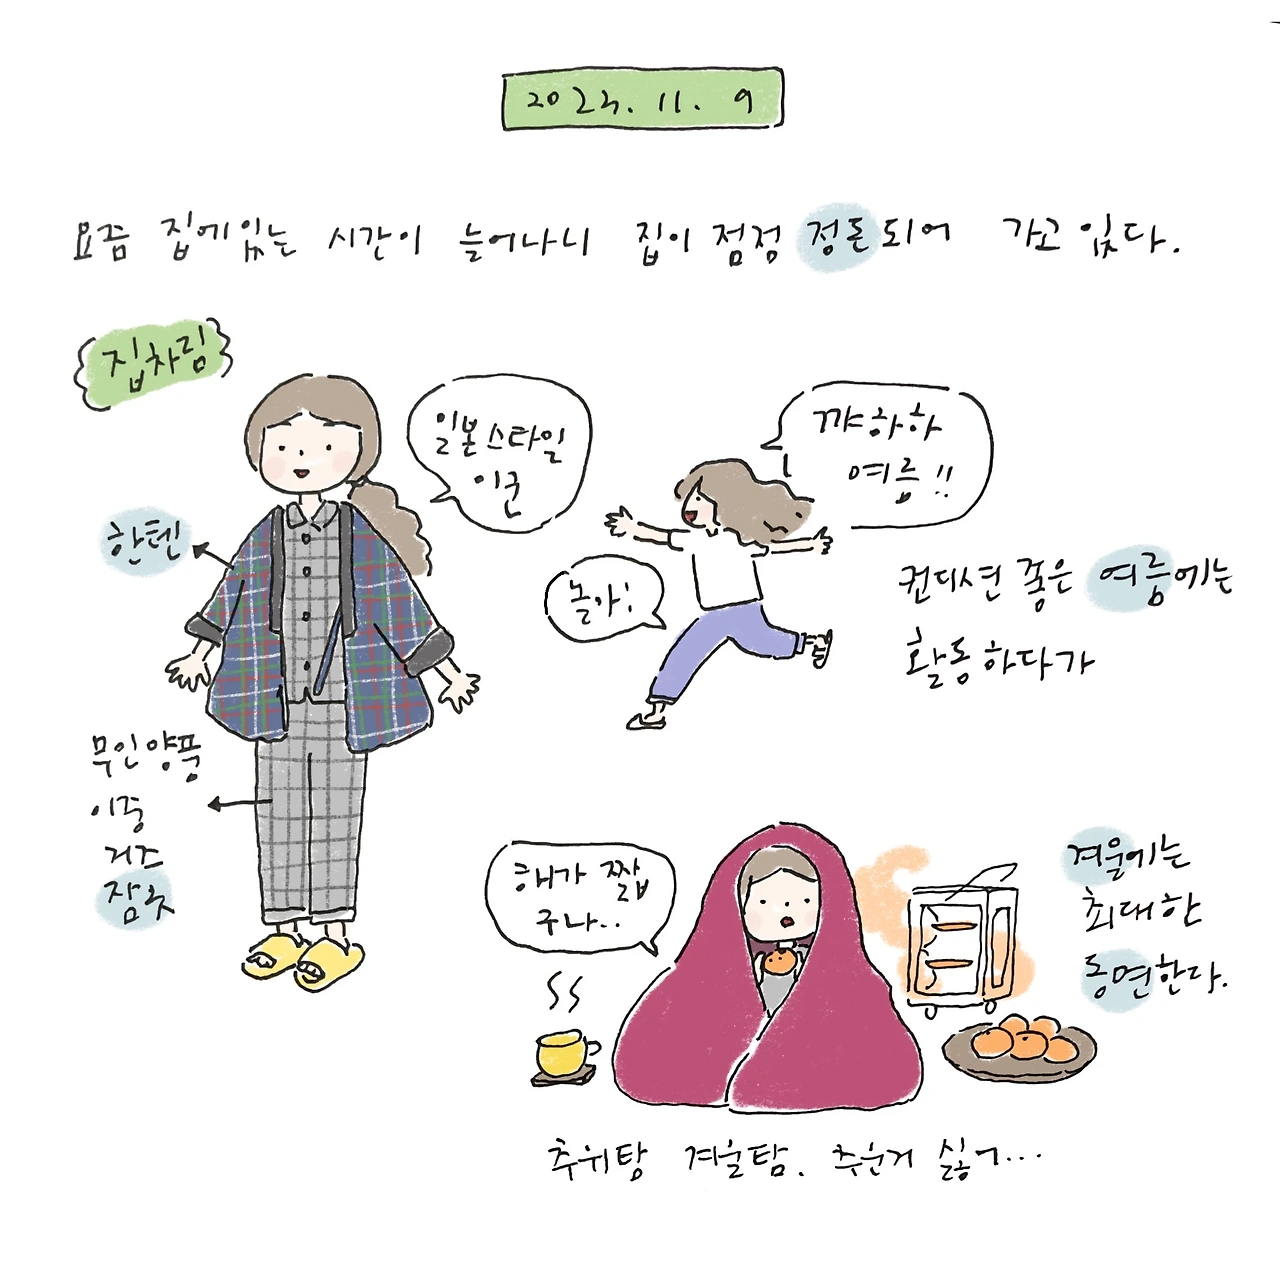 2023. 11. 9
요즘 집에있는 시간이 늘어나니 집이 점점 정돈되어 가고 있다.
집차림
일본스타일
이군
한텐
무인양품
이중
거즈
잠옷
꺄하하
여름!!
놀아!
컨디션 좋은 여름에는
활동하다가
해가 짧
구나..
겨울에는
최대한
동면한다.
추위탕 겨울탐. 추운거 싫어...